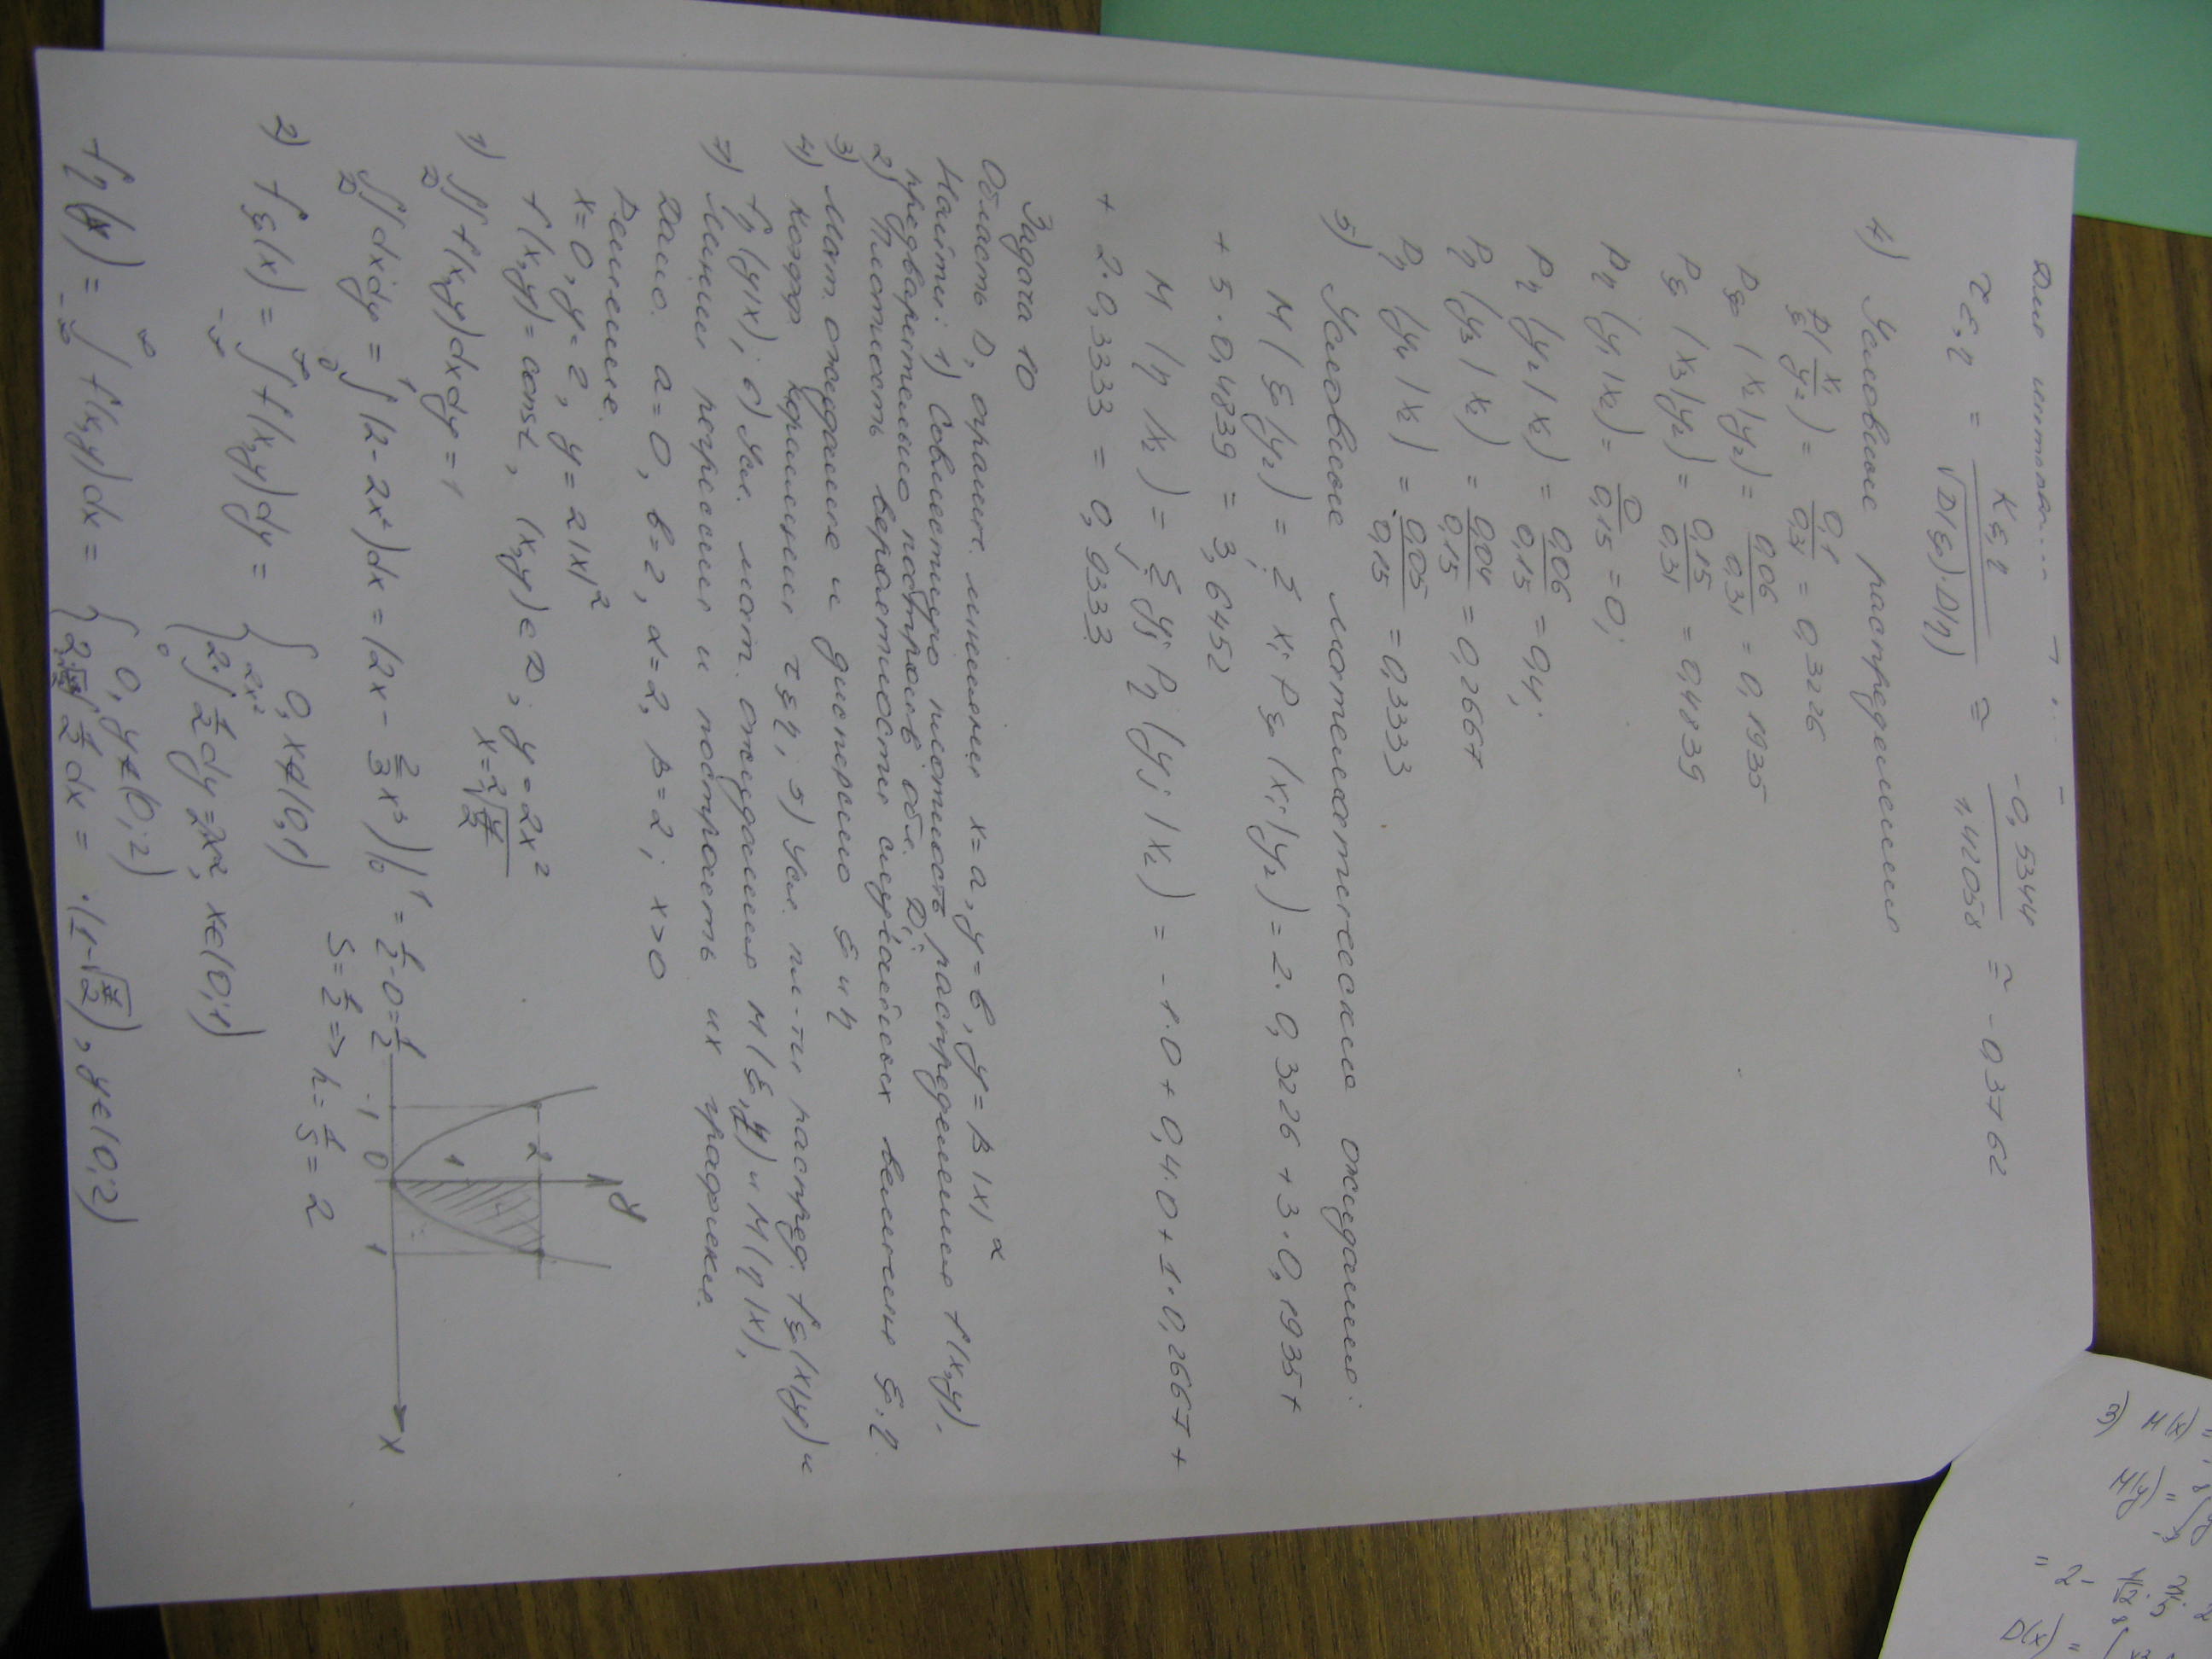 τξ,η = Kξ,η / √D(ξ)·D(η) ≈ -0,5344 / 1,42058 ≈ -0,3762
4) Условные распределения
Pξ(x₁/y₂) = 0,1/0,31 = 0,3226
Pξ(x₂|y₂) = 0,06/0,31 = 0,1935
Pξ(x₃|y₂) = 0,15/0,31 = 0,4839
Pη(y₁|x₂) = 0/0,15 = 0;
Pη(y₂|x₂) = 0,06/0,15 = 0,4;
Pη(y₃|x₂) = 0,04/0,15 = 0,2667
Pη(y₄|x₂) = 0,05/0,15 = 0,3333
5) Условные математические ожидания:
M(ξ|y₂) = Σ xᵢ Pξ(xᵢ|y₂) = 2·0,3226 + 3·0,1935 +
+ 5·0,4839 = 3,6452
M(η|x₂) = Σ yj Pη(yj|x₂) = -1·0 + 0,4·0 + 1·0,2667 +
+ 2·0,3333 = 0,9333
Задача 10
Область D, огранич. линиями x=a, y=b, y=β|x|^α
Найти: 1) Совместную плотность распределения f(x,y),
предварительно построив обл. D;
2) Плотность вероятности случайных величин ξ, η.
3) Мат. ожидание и дисперсию ξ и η
4) Коэфф корреляции τξη; 5) Усл. пл-ти распред. fξ(x|y) и
fη(y|x); 6) Усл. мат. ожидания M(ξ,y) и M(η|x),
7) Линии регрессии и построить их графики.
Дано. a=0, b=2, α=2, β=2; x>0
Решение.
x=0, y=2, y=2|x|²
f(x,y)=const, (x,y)∈D; y=2x²
x=2√y/2
1) ∬ f(x,y)dxdy=1
D
∬ dxdy = ∫₀¹(2-2x²)dx = (2x - 2/3 x³)|₀¹ = 1/2 - 0 = 1/2
D
S=1/2 => h=1/S=2
y
2
1
-1 0 1 x
2) fξ(x) = ∫ f(x,y)dy = { 0, x∉(0,1)
2·∫ 1/2 dy = 2x², x∈(0;1)
fη(y) = ∫ f(x,y)dx = { 0, y∉(0;2)
1/2 dx = ·(1-√y/2), y∈(0;2)
3) M(x) =
M(y) =
= 2 -
D(x) =